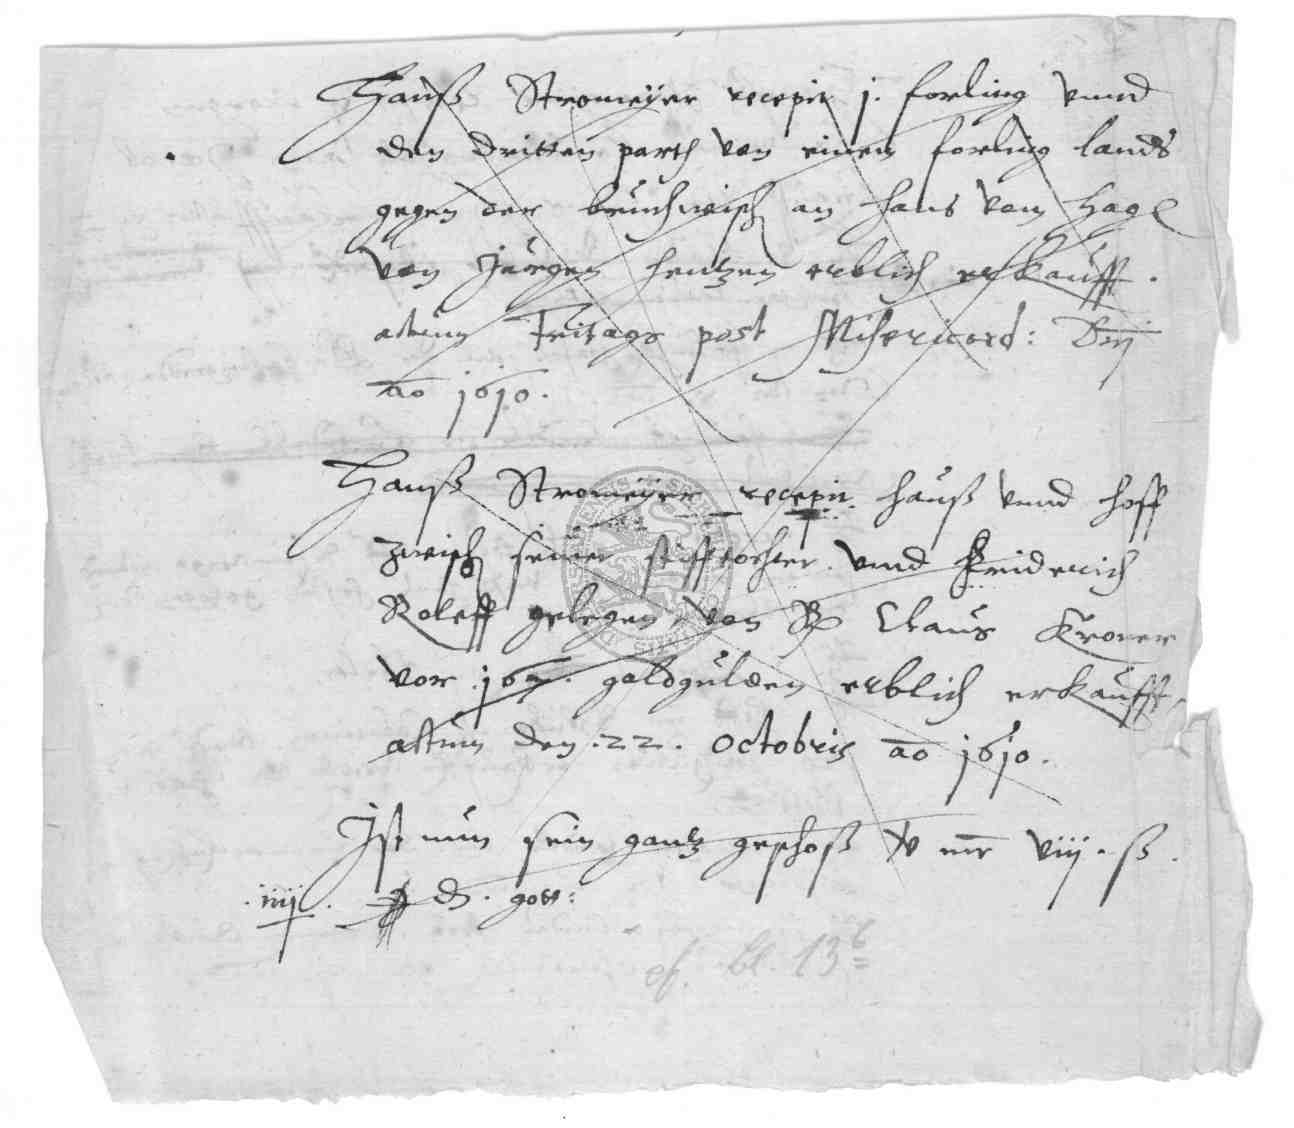 Hanß Stromeÿer recepit j. forling vnnd
den dritten parth von einem forling lands
gegen der bruchwisch an Hans vom Hage
von Jürgen Hentzen erblich erkaufft.
actum Freitags post Misericord: Dnj
ao 1610.
Hanß Stromeÿer recepit hauß vnnd hoff
zwisch seiner stifftochter vnnd Friderich
Roleff gelegen, von Claus Kroner
vor goldgülden erblich erkaufft
actum den .22. octobris ao 1610.
Ist nun sein gantz geschoß v mr viij. ß.
.iiij. d. gott:
cf. bl. 13b